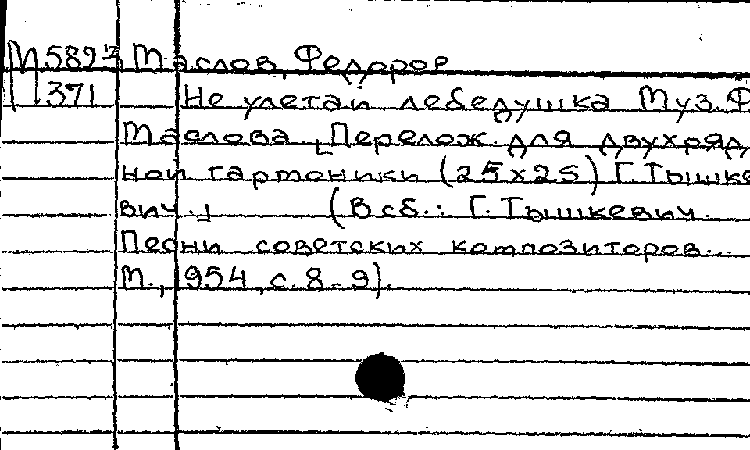 М5893 Маслов, Федор
371 Не улетай лебедушка Муз. Ф.
Маслова [Перелож. для двухряд
ной гармоники (25х25) Г. Тышке
вич.] (В сб.: Г. Тышкевич.
Песни советских композиторов...
М., 1954, с. 8-9).